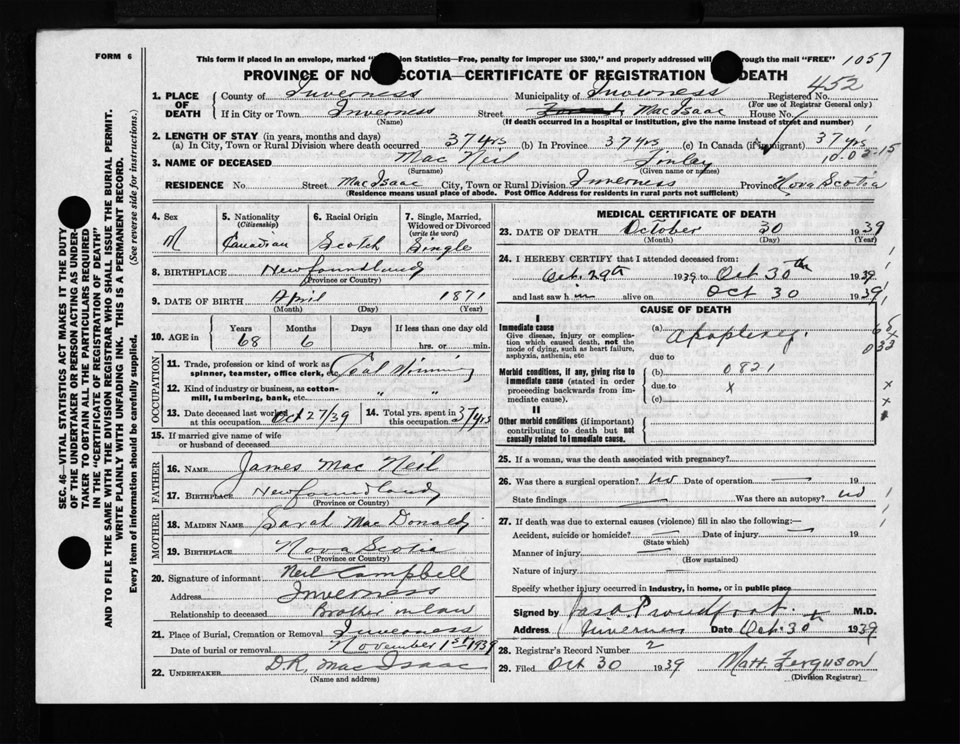 FORM 6
This form if placed in an envelope, marked "Statistics—Free, penalty for improper use $300," and properly addressed will through the mail "FREE" 1057
PROVINCE OF NO SCOTIA—CERTIFICATE OF REGISTRATION DEATH
452
1. PLACE OF DEATH
County of Inverness Municipality of Inverness Registered No.
(For use of Registrar General only)
If in City or Town Inverness Street MacIsaac House No.
(Name) (If death occurred in a hospital or institution, give the name instead of street and number)
2. LENGTH OF STAY (in years, months and days)
(a) In City, Town or Rural Division where death occurred 37 yrs (b) In Province 37 yrs (c) In Canada (if immigrant) 37 yrs
10-02-15
3. NAME OF DECEASED Mac Neil Finley
(Surname) (Given name or names)
RESIDENCE No. Street MacIsaac City, Town or Rural Division Inverness Province Nova Scotia
(Residence means usual place of abode. Post Office Address for residents in rural parts not sufficient)
4. Sex M
5. Nationality (Citizenship) Canadian
6. Racial Origin Scotch
7. Single, Married, Widowed or Divorced (write the word) Single
8. BIRTHPLACE Newfoundland
(Province or Country)
9. DATE OF BIRTH April 1871
(Month) (Day) (Year)
10. AGE in Years Months Days If less than one day old
68 6 hrs. or min.
OCCUPATION
11. Trade, profession or kind of work as spinner, teamster, office clerk, etc. Coal Mining
12. Kind of industry or business, as cotton-mill, lumbering, bank, etc. " "
13. Date deceased last worked at this occupation Oct 27/39
14. Total yrs. spent in this occupation 37 yrs
15. If married give name of wife or husband of deceased
FATHER
16. NAME James Mac Neil
17. BIRTHPLACE Newfoundland
(Province or Country)
MOTHER
18. MAIDEN NAME Sarah MacDonald
19. BIRTHPLACE Nova Scotia
(Province or Country)
20. Signature of informant Neil Campbell
Address Inverness
Relationship to deceased Brother in law
21. Place of Burial, Cremation or Removal Inverness
Date of burial or removal November 1st 1939
22. UNDERTAKER D.R. MacIsaac
(Name and address)
MEDICAL CERTIFICATE OF DEATH
23. DATE OF DEATH October 30 1939
(Month) (Day) (Year)
24. I HEREBY CERTIFY that I attended deceased from:
Oct. 29th 1939 to Oct 30th 1939
and last saw him alive on Oct 30 1939
CAUSE OF DEATH
I
Immediate cause
Give disease, injury or complication which caused death, not the mode of dying, such as heart failure, asphyxia, asthenia, etc
(a) Apoplexy.
due to
Morbid conditions, if any, giving rise to immediate cause (stated in order proceeding backwards from immediate cause).
(b) 0821
due to x
(c)
II
Other morbid conditions (if important) contributing to death but not causally related to immediate cause.
25. If a woman, was the death associated with pregnancy?
26. Was there a surgical operation? No Date of operation — 19
State findings — Was there an autopsy? No
27. If death was due to external causes (violence) fill in also the following:—
Accident, suicide or homicide? — Date of injury — 19
(State which)
Manner of injury —
(How sustained)
Nature of injury —
Specify whether injury occurred in industry, in home, or in public place
Signed by Jas. A. Proudfoot. M.D.
Address Inverness Date Oct. 30th 1939
28. Registrar's Record Number 2
29. Filed Oct 30 1939 Matt Ferguson
(Division Registrar)
SEC. 46—VITAL STATISTICS ACT MAKES IT THE DUTY
OF THE UNDERTAKER OR PERSON ACTING AS UNDER-
TAKER TO OBTAIN ALL THE PARTICULARS REQUIRED
IN THE "CERTIFICATE OF REGISTRATION OF DEATH"
AND TO FILE THE SAME WITH THE DIVISION REGISTRAR WHO SHALL ISSUE THE BURIAL PERMIT.
WRITE PLAINLY WITH UNFADING INK. THIS IS A PERMANENT RECORD.
Every item of information should be carefully supplied. (See reverse side for instructions.)